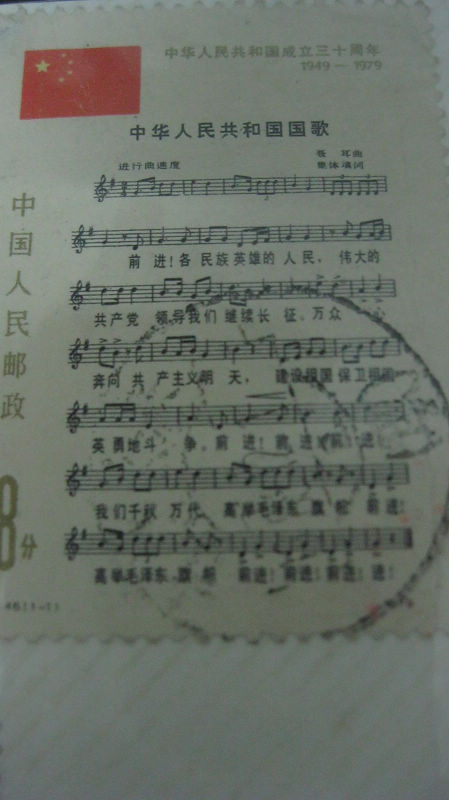 中华人民共和国成立三十周年
1949—1979
中华人民共和国国歌
聂 耳曲
进行曲速度 集体填词
前 进！各 民族 英雄的 人 民， 伟大的
共产党 领导我们 继续长 征。万众 心
奔向 共 产主义明 天， 建设祖国 保卫祖国
英 勇地斗 争。前 进！前 进！前！进！
我们千秋 万代 高举毛泽东 旗 帜 前进！
高举毛泽东 旗 帜 前进！前进！前进！进！
中国人民邮政
8分
46（1-1）